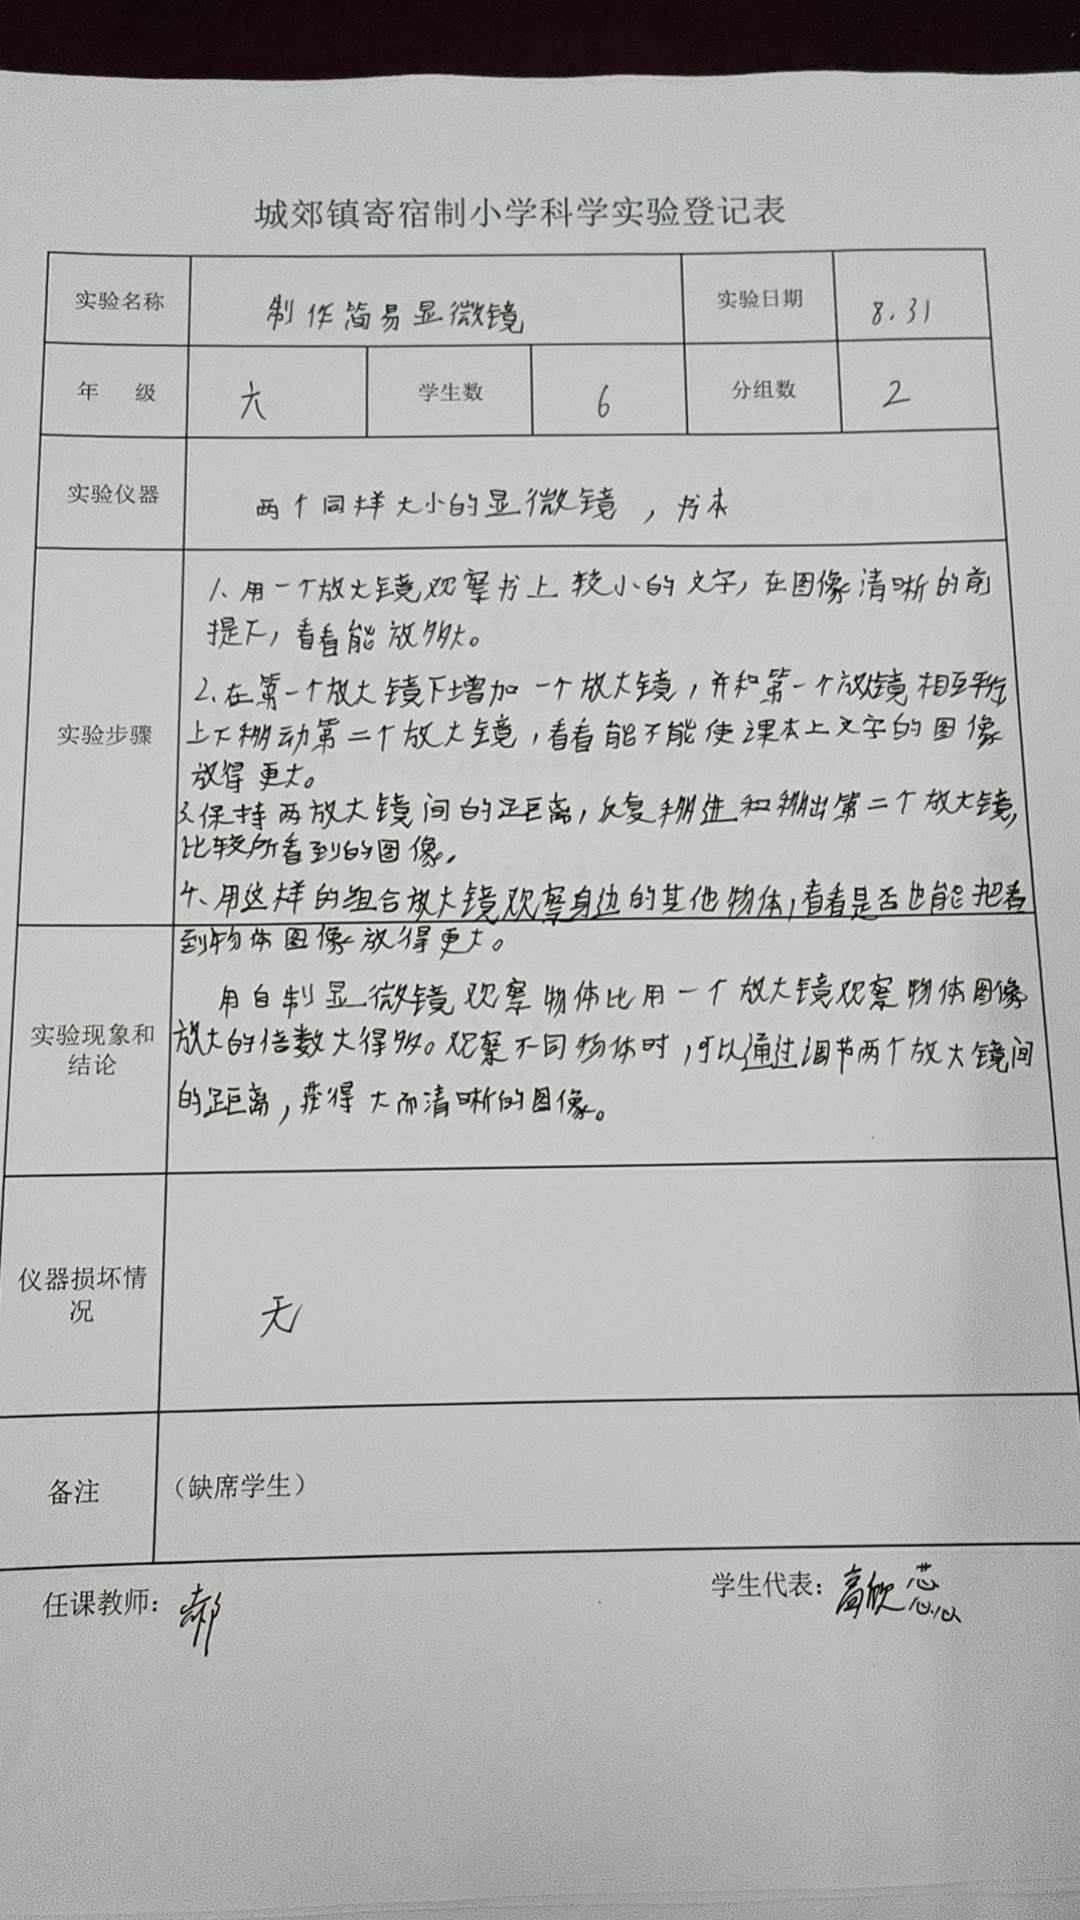 城郊镇寄宿制小学科学实验登记表
实验名称 制作简易显微镜 实验日期 8.31
年 级 六 学生数 6 分组数 2
实验仪器 两个同样大小的显微镜，书本
实验步骤
1、用一个放大镜观察书上较小的文字，在图像清晰的前
提下，看看能放多大。
2、在第一个放大镜下增加一个放大镜，并和第一个放大镜相互平行
上下挪动第二个放大镜，看看能不能使课本上文字的图像
放得更大。
3、保持两放大镜间的距离，反复挪进和挪出第二个放大镜，
比较所看到的图像。
4、用这样的组合放大镜观察身边的其他物体，看看是否也能把看
到物体图像放得更大。
实验现象和
结论
用自制显微镜观察物体比用一个放大镜观察物体图像
放大的倍数大得多。观察不同物体时，可以通过调节两个放大镜间
的距离，获得大而清晰的图像。
仪器损坏情
况
无
备注 （缺席学生）
任课教师：郝 学生代表：高欣蕊